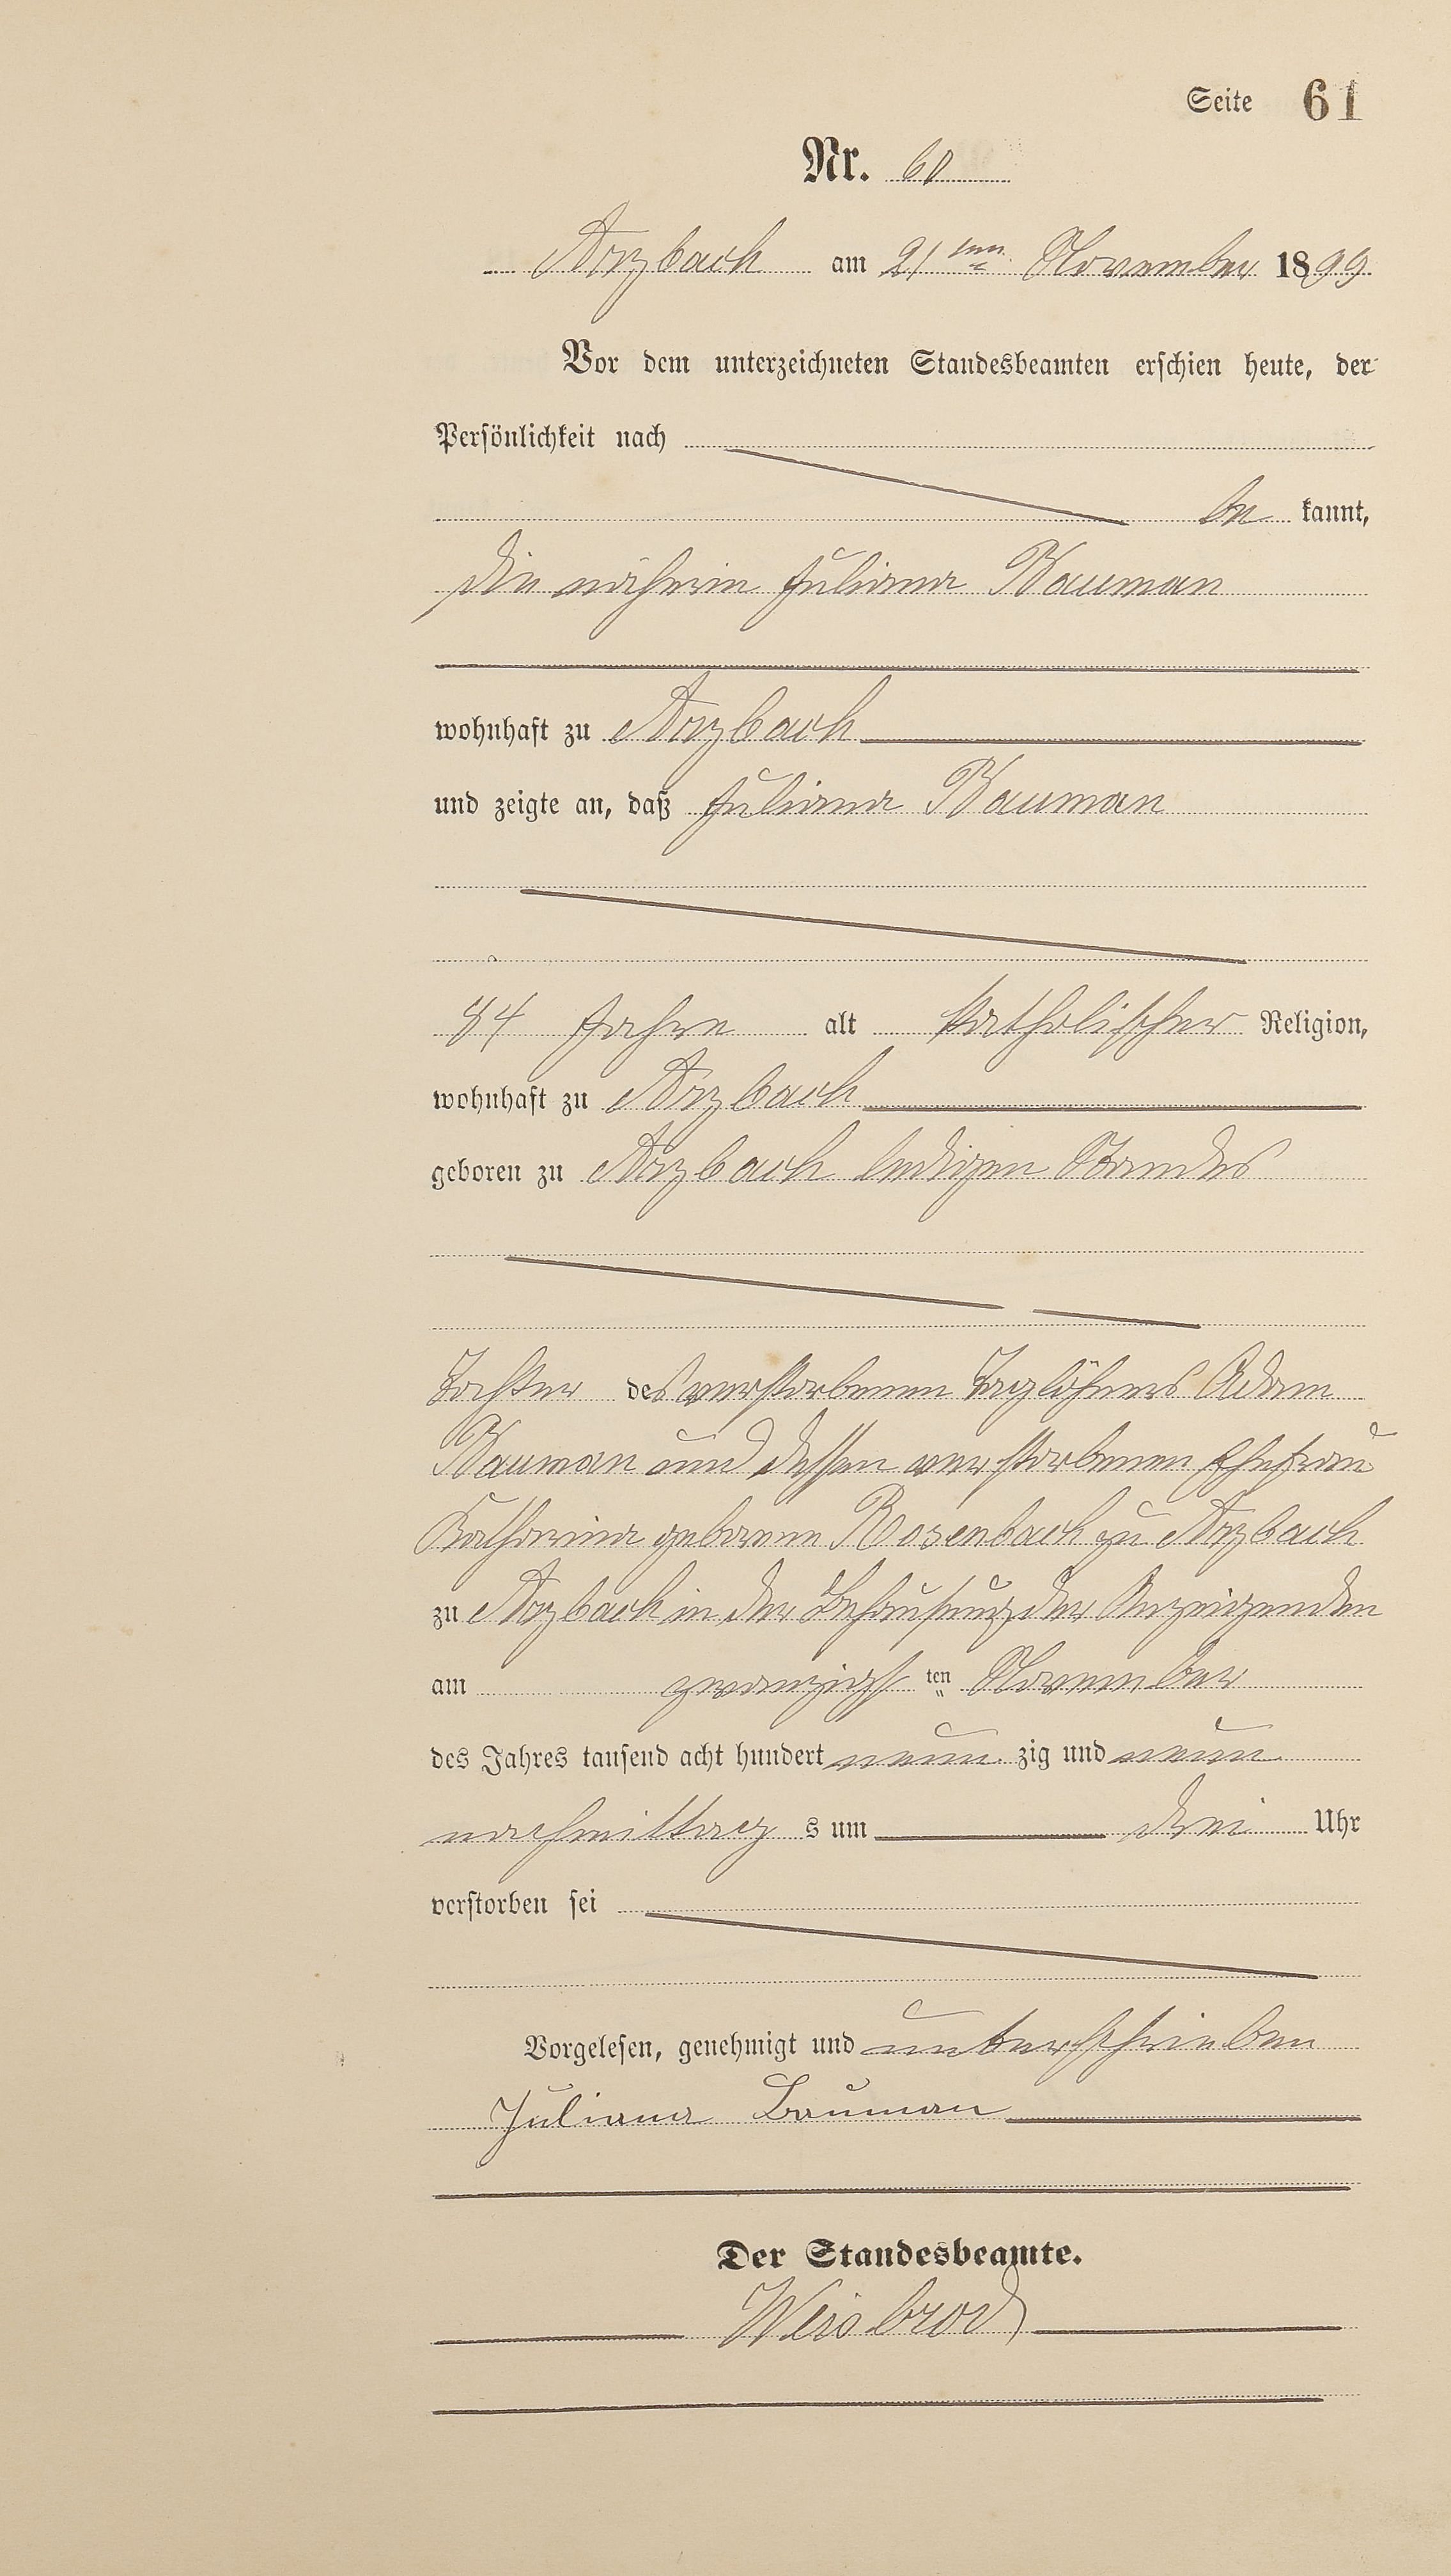 Seite 61
Nr. 60
Arzbach am 21ten November 1899
Vor dem unterzeichneten Standesbeamten erschien heute, der
Persönlichkeit nach
be kannt,
die näherin Juliana Bauman
wohnhaft zu Arzbach
und zeigte an, daß Juliana Bauman
84 Jahre alt katholischer Religion,
wohnhaft zu Arzbach
geboren zu Arzbach ledigen Standes
Tochter des verstorbenen Taglöhners Adam
Bauman und dessen verstorbenen Ehefrau
Katharina geborene Rosenbach zu Arzbach
zu Arzbach in der Behausung der Anzeigenden
am zwanzigst ten November
des Jahres tausend acht hundert neun zig und neun
nachmittag s um drei Uhr
verstorben sei
Vorgelesen, genehmigt und unterschrieben
Juliana Bauman
Der Standesbeamte.
Weisbrod